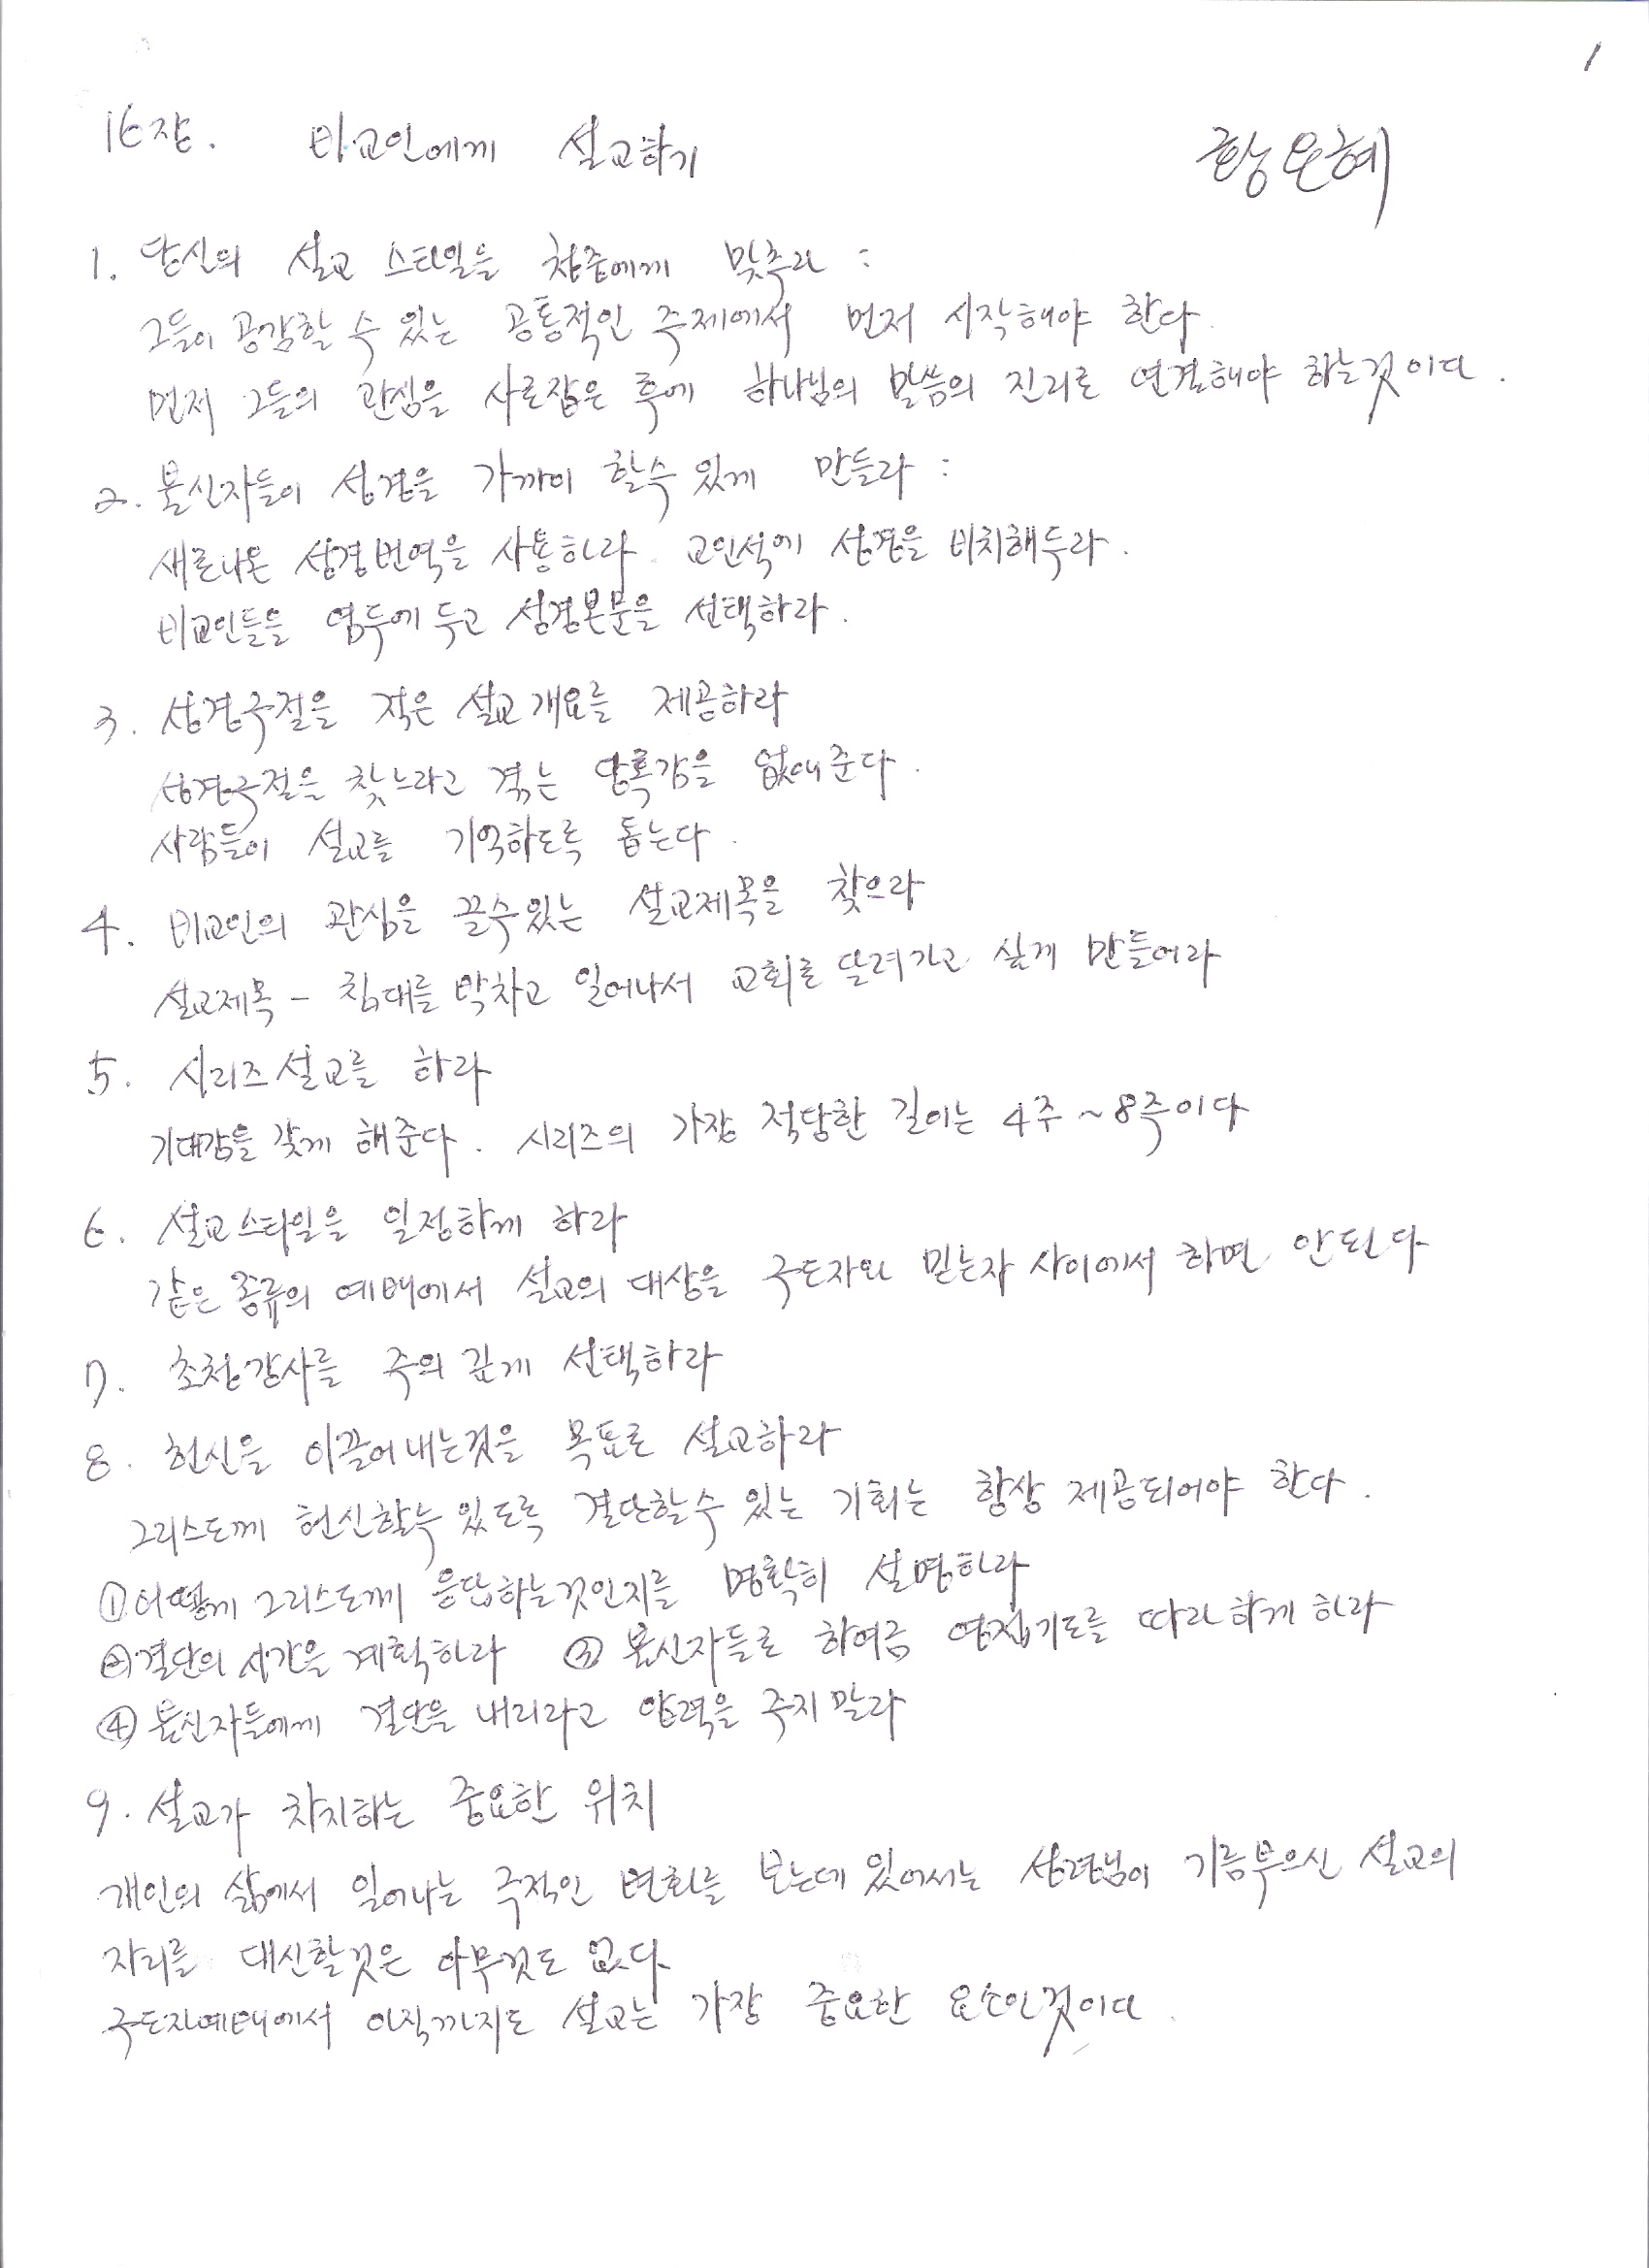 1
16장. 비교인에게 설교하기 황은혜
1. 당신의 설교 스타일을 청중에게 맞추라 :
그들이 공감할 수 있는 공통적인 주제에서 먼저 시작해야 한다.
먼저 그들의 관심을 사로잡은 후에 하나님의 말씀의 진리로 연결해야 하는것이다.
2. 불신자들이 성경을 가까이 할수 있게 만들라 :
새로나온 성경번역을 사용하라. 교인석에 성경을 비치해두라.
비교인들을 염두에 두고 성경본문을 선택하라.
3. 성경구절을 적은 설교개요를 제공하라
성경구절을 찾느라고 겪는 당혹감을 없애준다.
사람들이 설교를 기억하도록 돕는다.
4. 비교인의 관심을 끌수있는 설교제목을 찾으라
설교제목 - 침대를 박차고 일어나서 교회로 달려가고 싶게 만들어라
5. 시리즈설교를 하라
기대감을 갖게 해준다. 시리즈의 가장 적당한 길이는 4주~8주이다
6. 설교스타일을 일정하게 하라
같은 종류의 예배에서 설교의 대상을 구도자와 믿는자 사이에서 하면 안된다
7. 초청강사를 주의 깊게 선택하라
8. 헌신을 이끌어내는것을 목표로 설교하라
그리스도께 헌신할수 있도록 결단할수 있는 기회는 항상 제공되어야 한다.
①어떻게 그리스도께 응답하는것인지를 명확히 설명하라
②결단의 시간을 계획하라 ③ 불신자들로 하여금 영접기도를 따라하게 하라
④ 불신자들에게 결단을 내리라고 압력을 주지말라
9. 설교가 차지하는 중요한 위치
개인의 삶에서 일어나는 극적인 변화를 보는데 있어서는 성령님이 기름부으신 설교의
자리를 대신할것은 아무것도 없다
구도자예배에서 아직까지도 설교는 가장 중요한 요소인것이다.